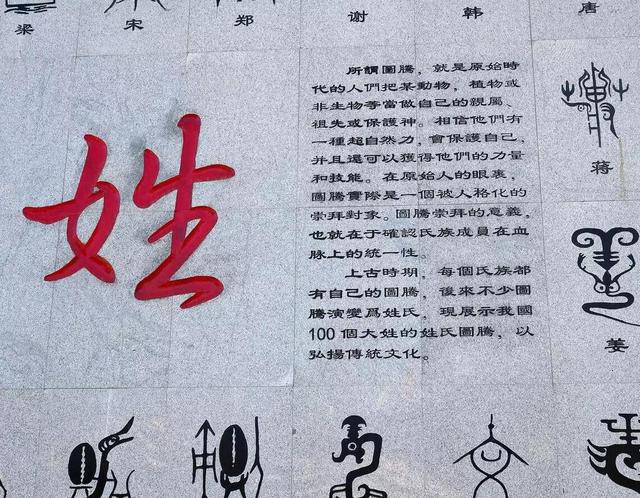 梁 宋 郑 谢 韩 唐
姓
所謂圖騰，就是原始時
代的人們把某動物，植物或
非生物等當做自己的親屬、
祖先或保護神。相信他們有
一種超自然力，會保護自己，
并且還可以獲得他們的力量
和技能。在原始人的眼裏，
圖騰實際是一個被人格化的
崇拜對象。圖騰崇拜的意義，
也就在于確認氏族成員在血
脉上的統一性。
上古時期，每個氏族都
有自己的圖騰，後來不少圖
騰演變爲姓氏，現展示我國
100個大姓的姓氏圖騰，以
弘揚傳統文化。
蒋
姜